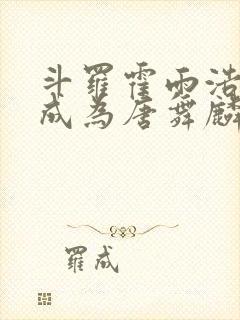 斗羅霍雨浩
成為唐舞麟
羅成